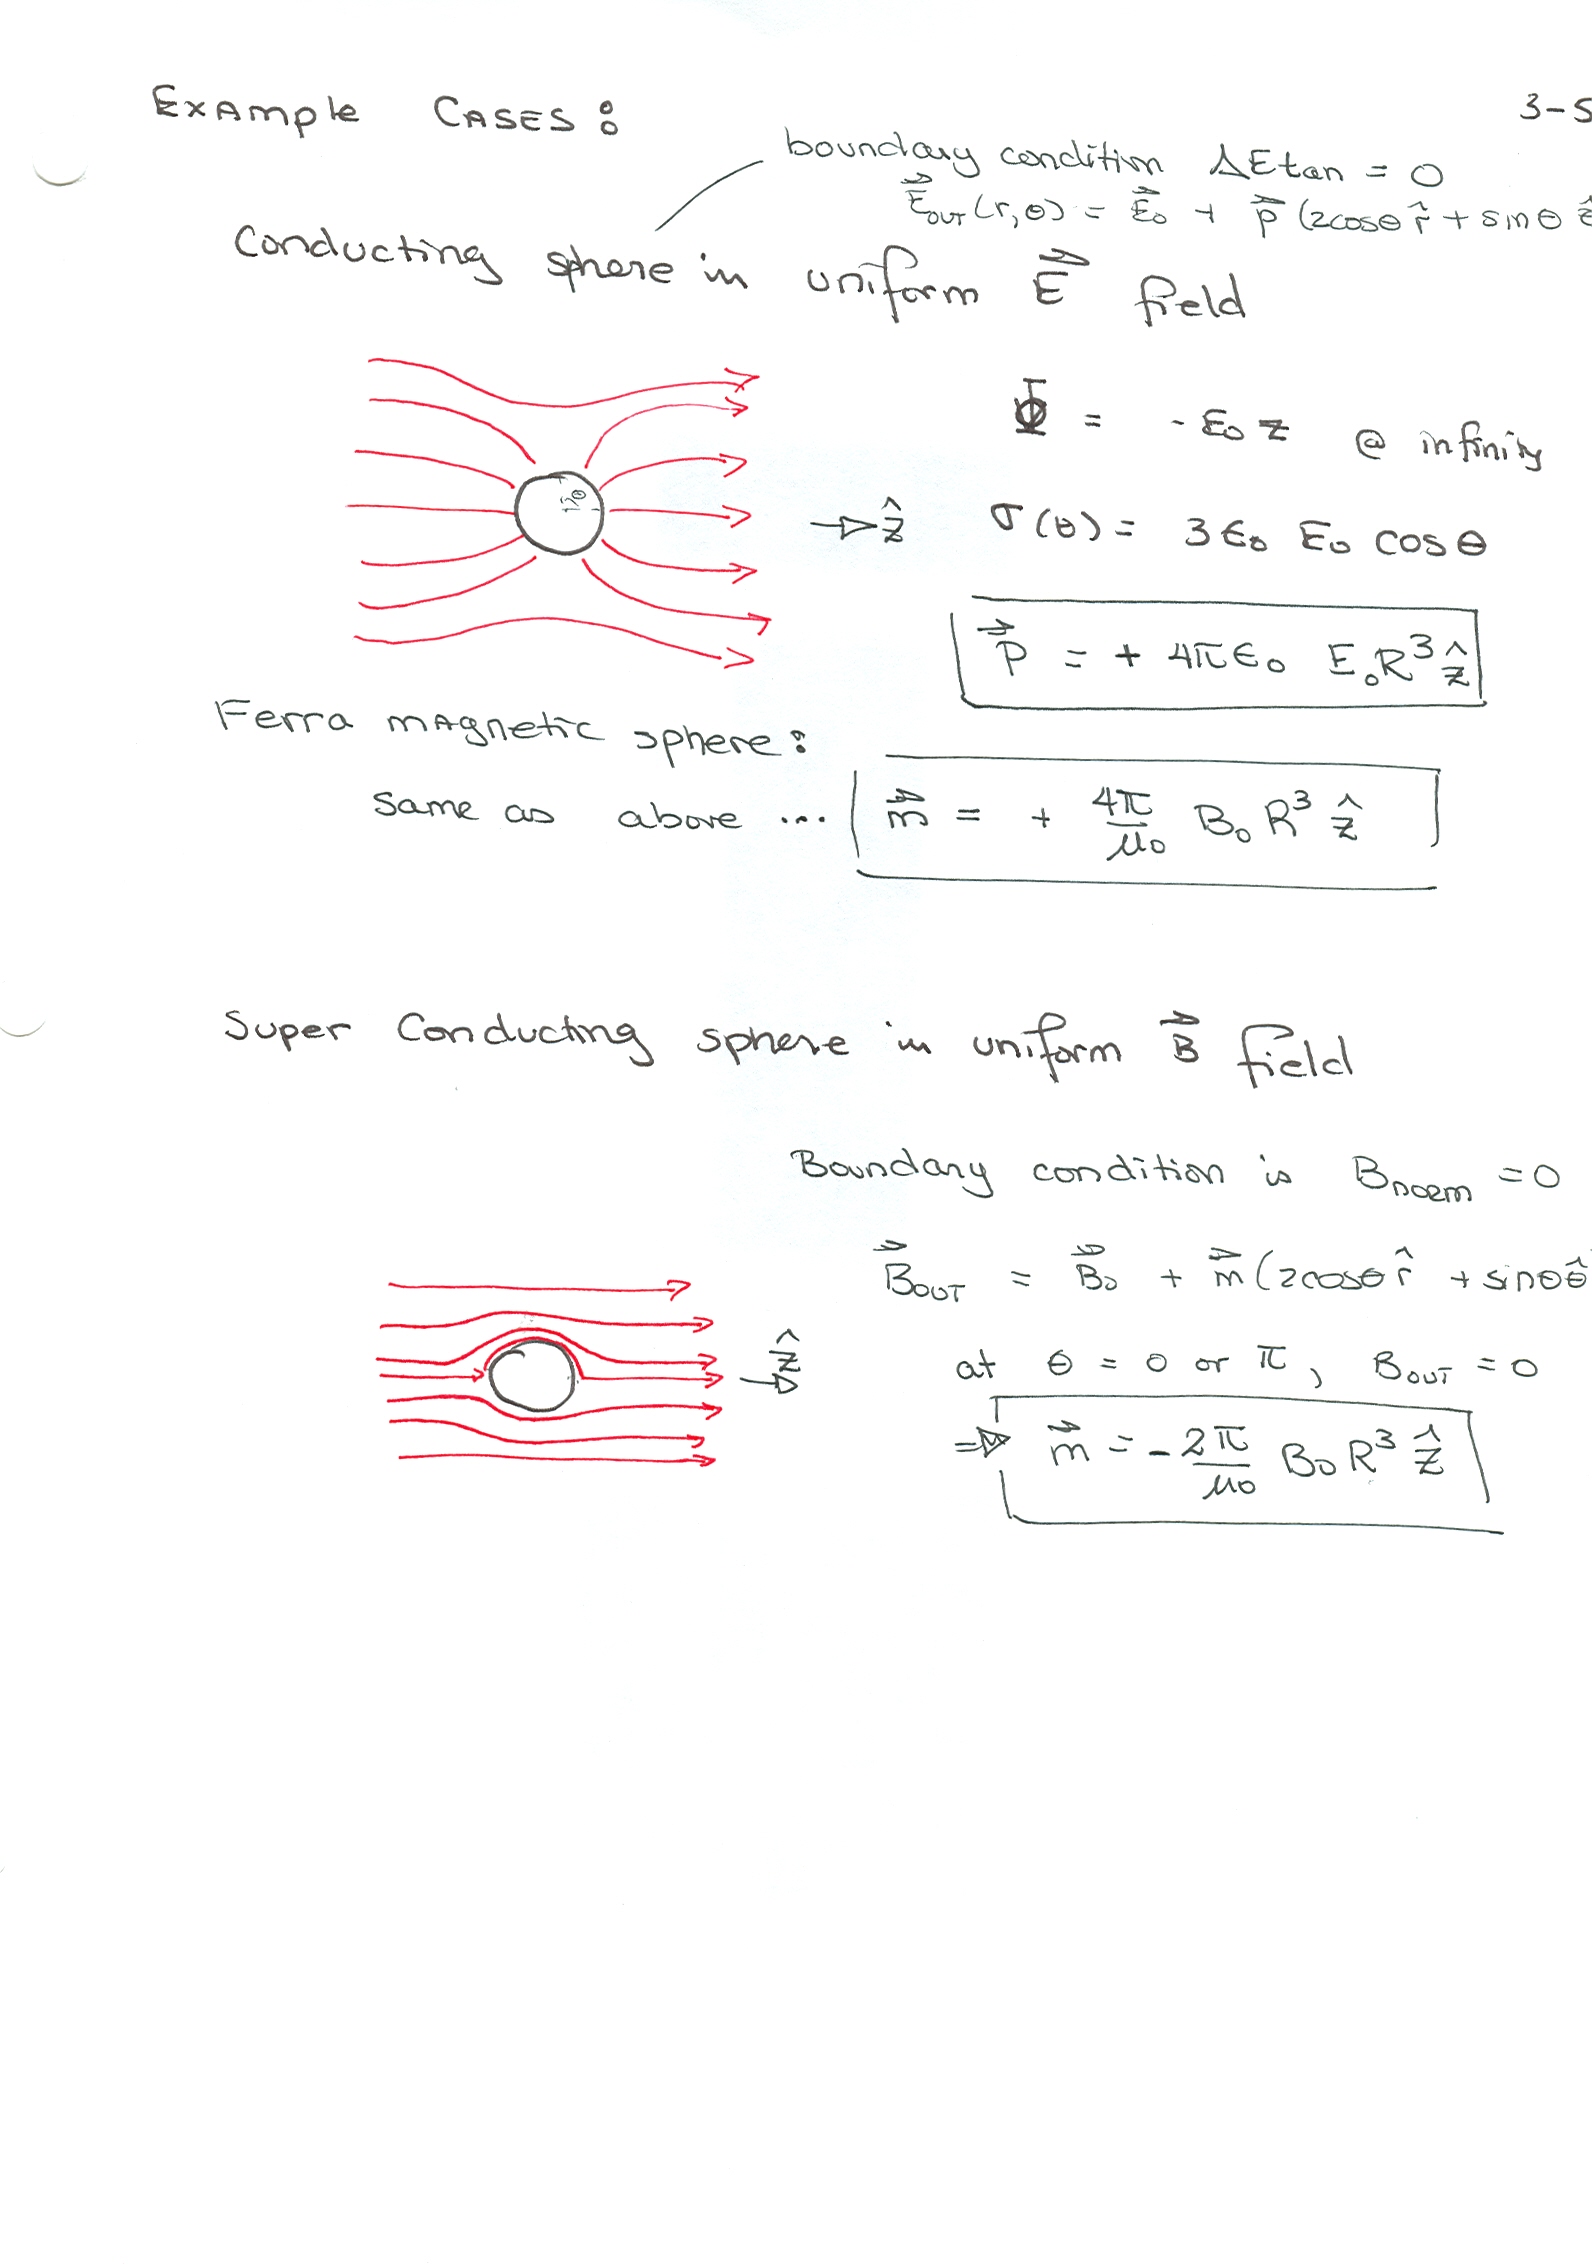 Example Cases:
3-5
boundary condition ΔEtan = 0
E⃗out (r,θ) = E⃗o + p⃗ (2cosθ r̂ + sinθ
Conducting sphere in uniform E⃗ field
Φ = - Eo z @ infinity
θ
→ ẑ
σ(θ) = 3ϵo Eo cosθ
p⃗ = + 4πϵo EoR³ẑ
Ferra magnetic sphere:
same as above ... m⃗ = + 4π/μo Bo R³ ẑ
Super Conducting sphere in uniform B⃗ field
Boundary condition is Bnorm = 0
B⃗out = B⃗o + m⃗ (2cosθ r̂ + sinθ θ̂
ẑ
at θ = 0 or π, Bout = 0
⇒ m⃗ = - 2π/μo Bo R³ ẑ